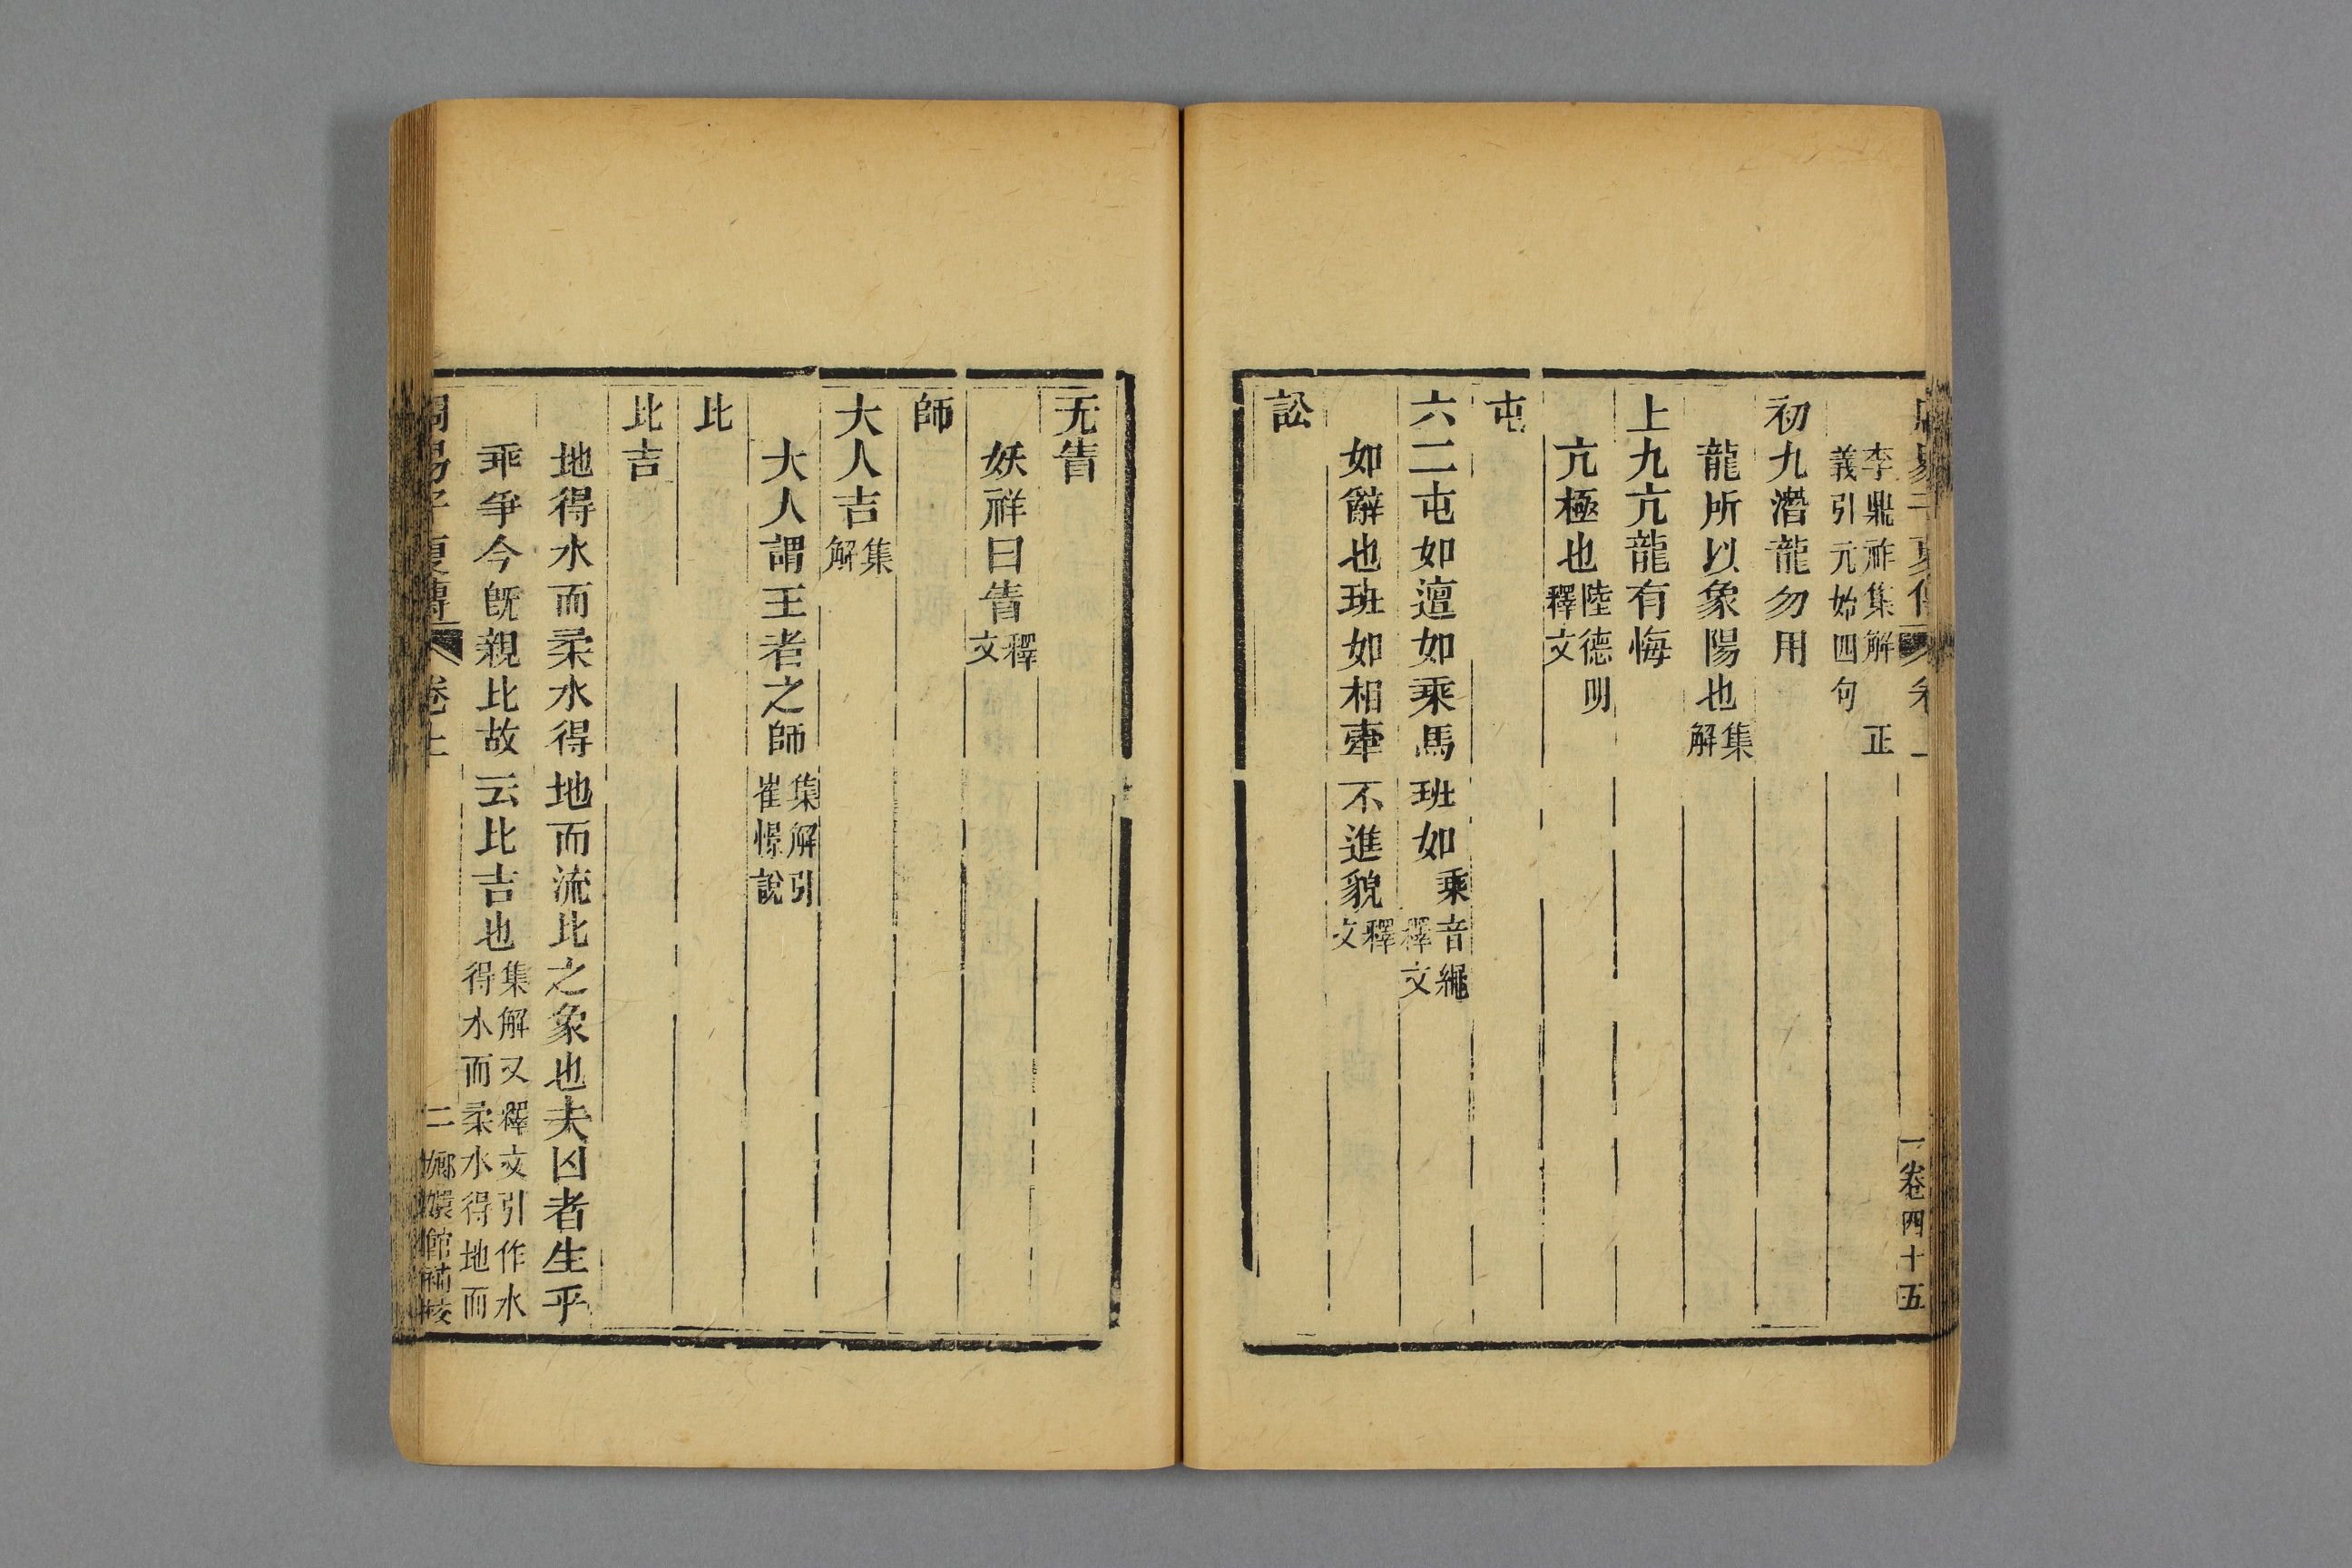 李鼎祚集解 正
義引元始四句
初九潛龍勿用
龍所以象陽也集解
上九亢龍有悔
亢極也陸德明釋文
屯
六二屯如邅如乘馬班如乘音繩釋文
如辭也班如相牽不進貌釋文
訟
一卷四十五
无眚
妖祥曰眚釋文
師
大人吉集解
大人謂王者之師集解引崔憬說
比
比吉
地得水而柔水得地而流比之象也夫凶者生乎
乖爭今旣親比故云比吉也集解又釋文引作水得水而柔水得地而
周易子夏傳 卷上 二 嫏嬛館補校